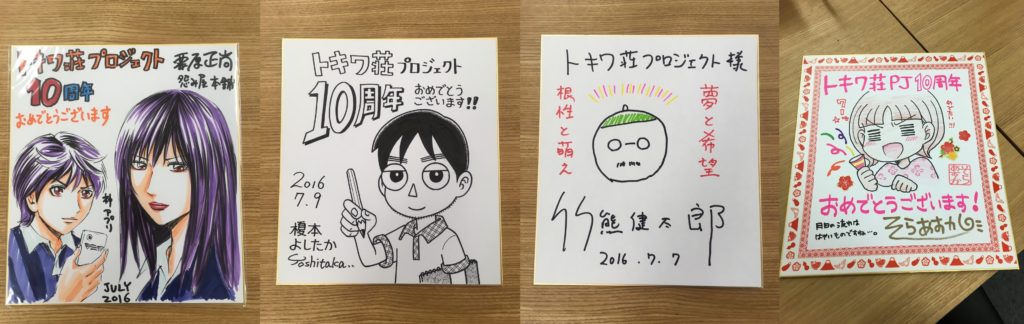 トキワ荘プロジェクト
10周年
おめでとうございます
栗原正尚
怨み屋本舗
神アプリ
JULY
2016
トキワ荘プロジェクト
10周年
おめでとう
ございます!!
2016
7.9
榎本
よしたか
Yoshitaka..
トキワ荘プロジェクト様
夢と希望
根性と萌え
竹熊健太郎
2016.7.7
トキワ荘PJ10周年
おめでとうございます!
月日の流れは
はやいものですね…。
そらあすか